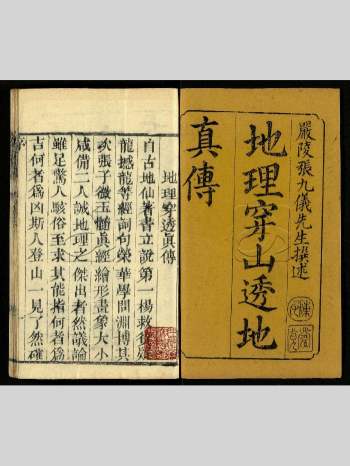 嚴陵張九儀先生撰述
地理穿山透地
真傳
地理穿透眞傳
自古地仙著書立說第一楊救貧
龍撼龍等經詞句榮華學問淵博其
次張子微玉髓眞經繪形畫象大小
咸備二人誠地理之傑出者然議論
雖足驚人駭俗至求其能指何者爲
吉何者爲凶斯人登山一見了然確